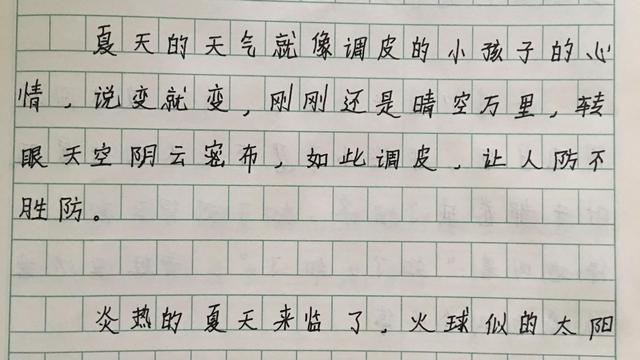 夏天的天气就像调皮的小孩子的心
情，说变就变，刚刚还是晴空万里，转
眼天空阴云密布，如此调皮，让人防不
胜防。
炎热的夏天来临了，火球似的太阳